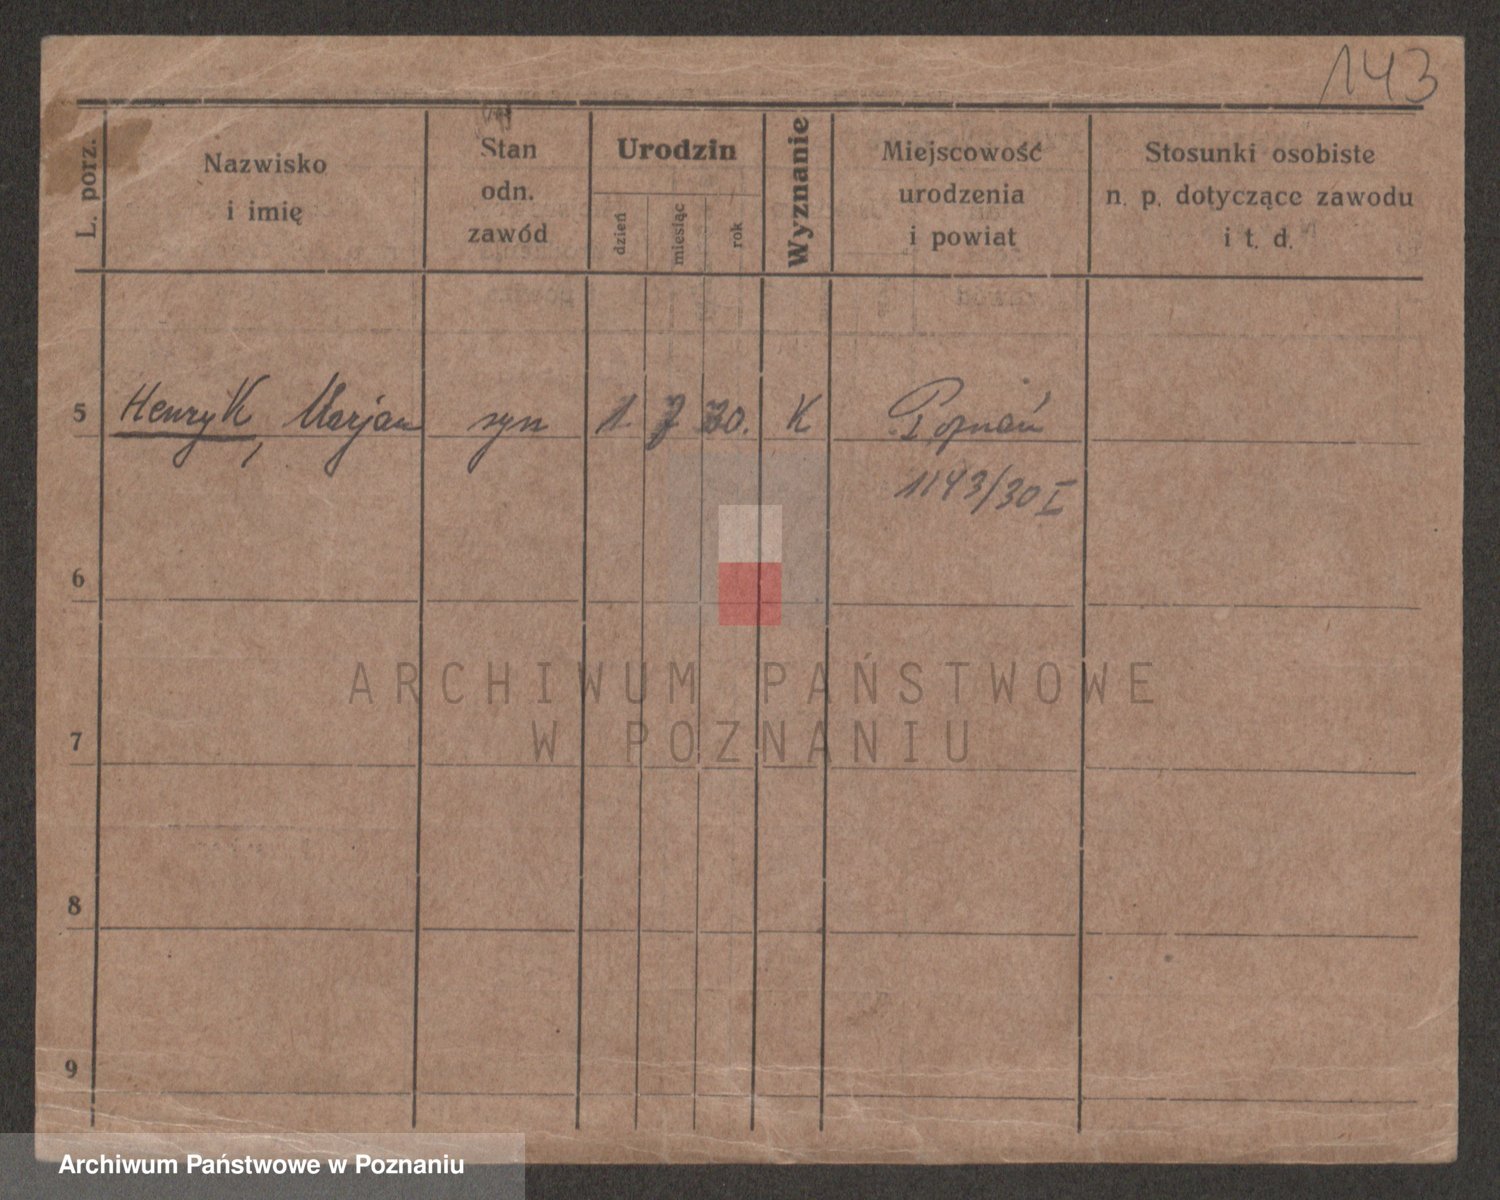 143
L. porz.
Nazwisko
i imię
Stan
odn.
zawód
Urodzin
dzień
miesiąc
rok
Wyznanie
Miejscowość
urodzenia
i powiat
Stosunki osobiste
n. p. dotyczące zawodu
i t. d.
5 Henryk, Marjan syn 1. 7 30. K Poznań
1143/30 I
6
ARCHIWUM PAŃSTWOWE
W POZNANIU
7
8
9
Archiwum Państwowe w Poznaniu